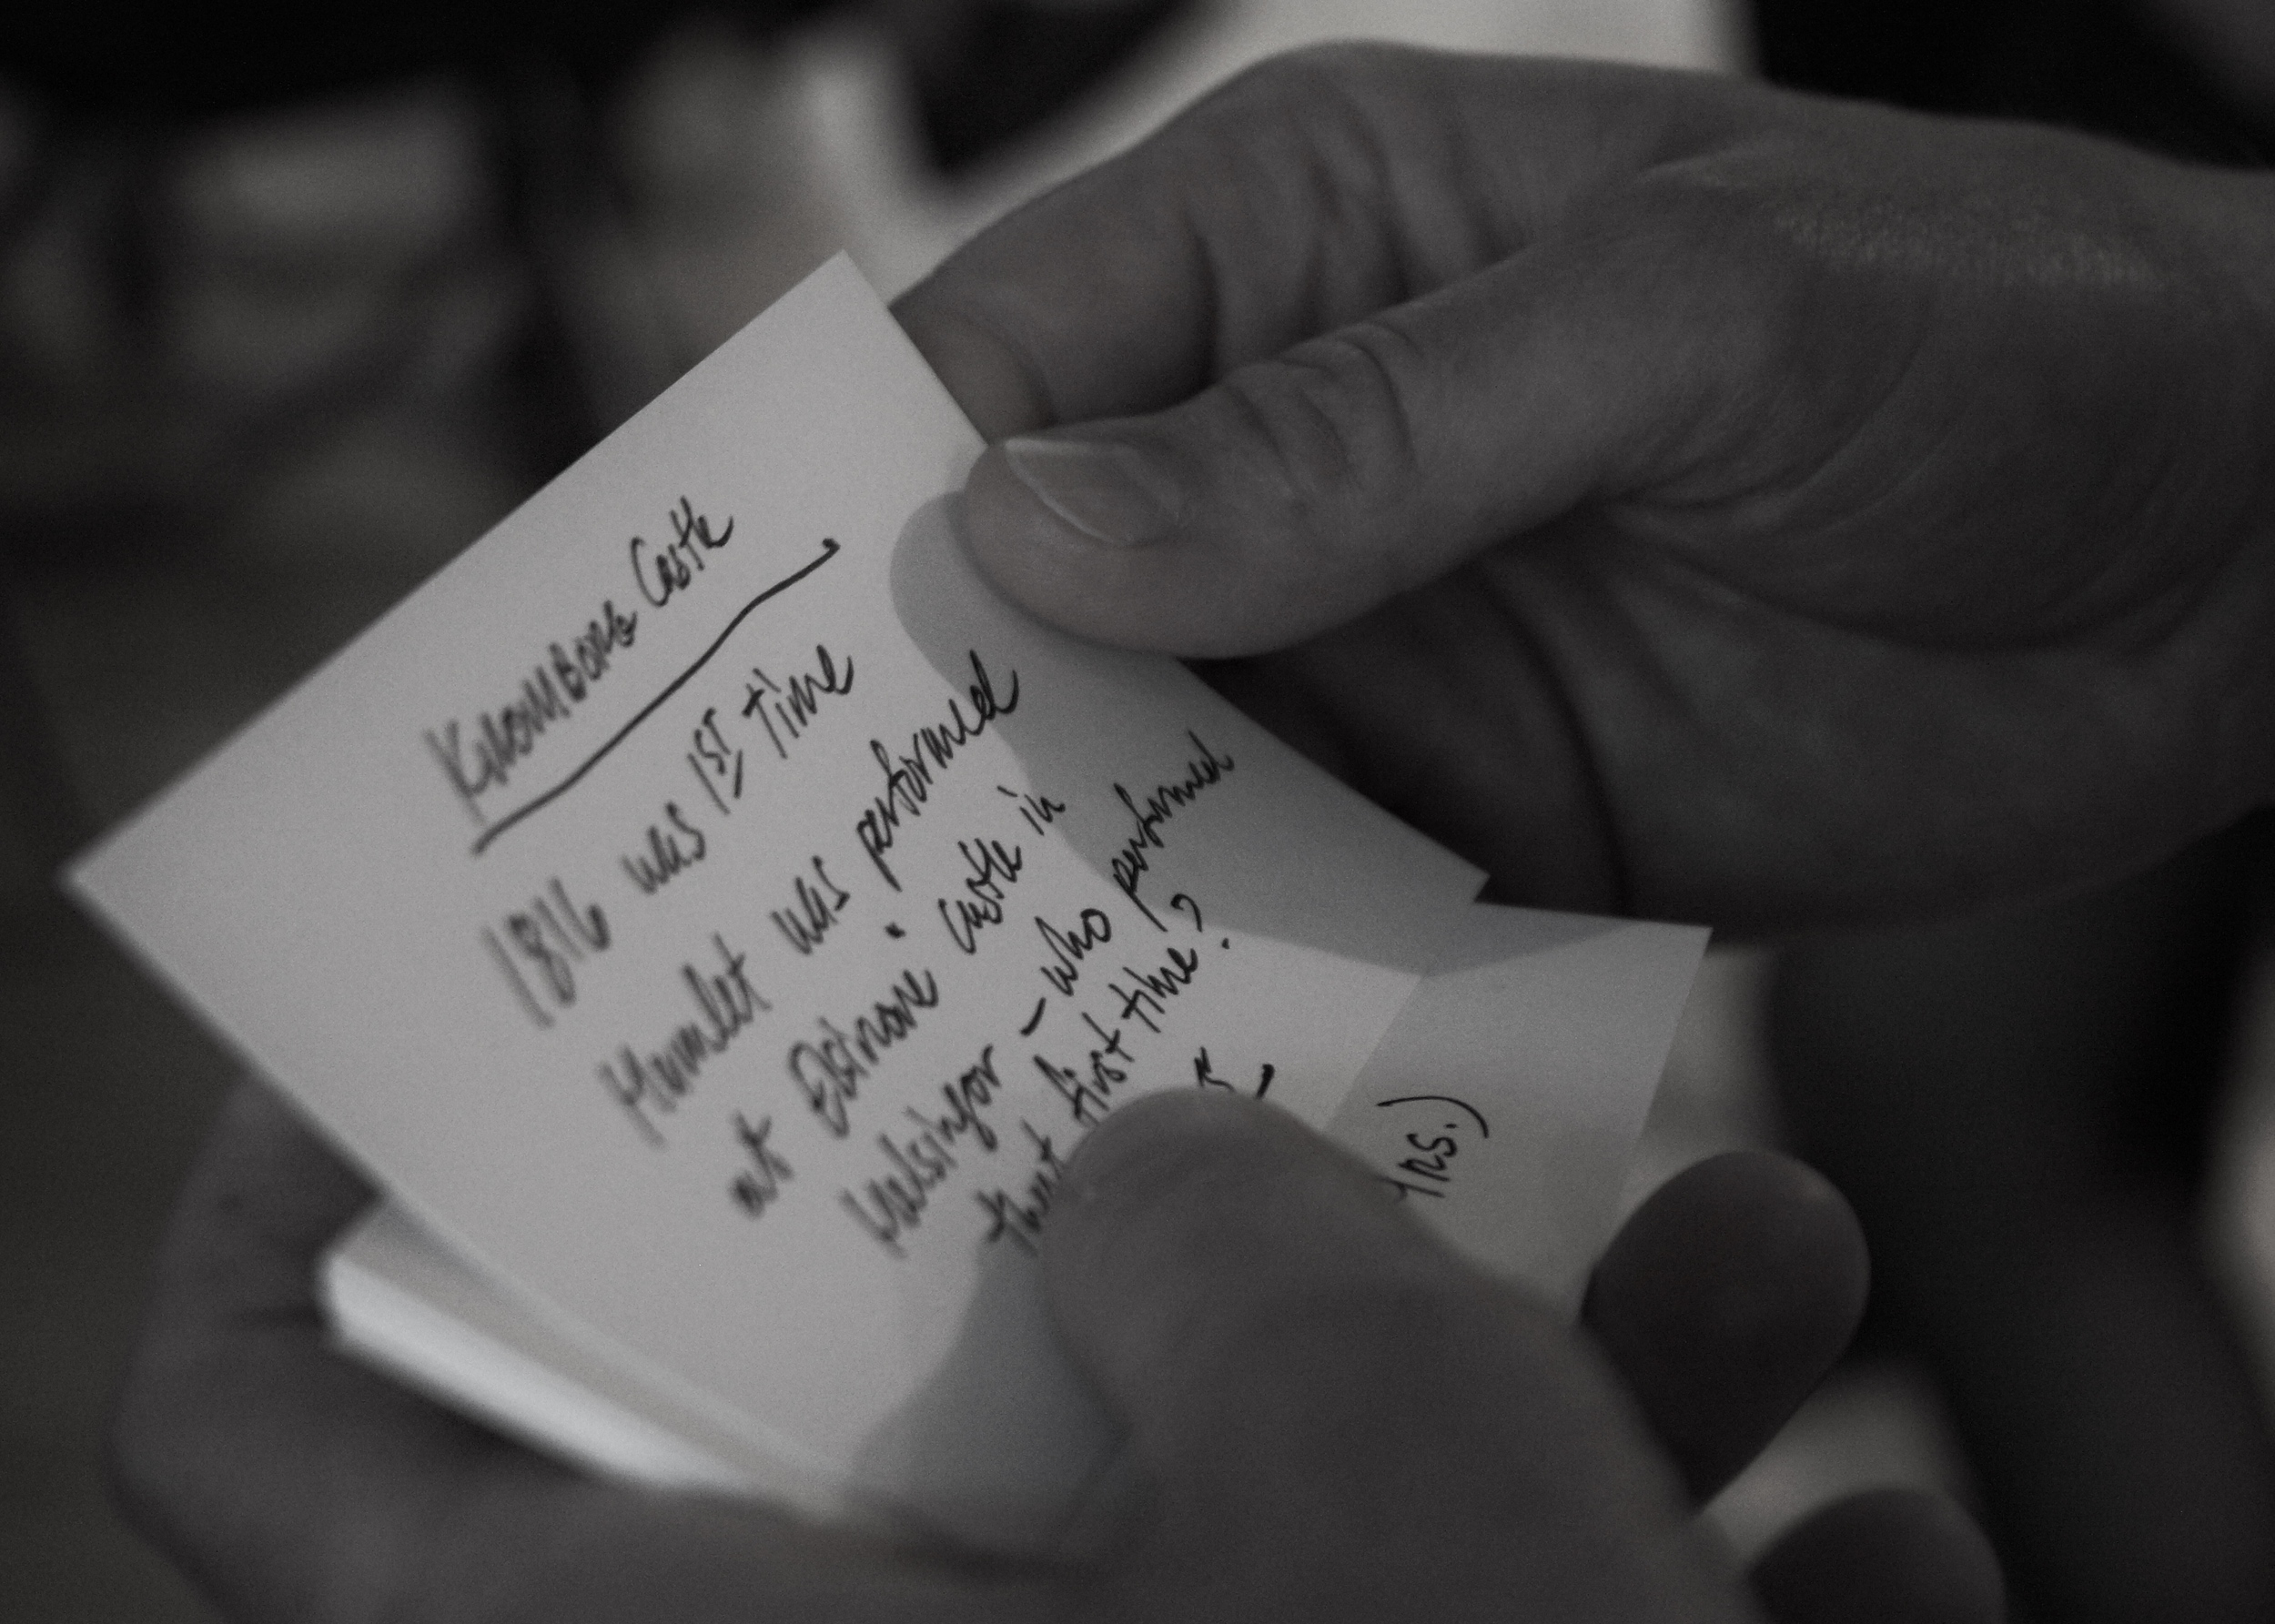 KROMBORG Castle
1816 was 1ST time
Hamlet was performed
at Elsinore" Castle in
Helsingor - who performed
that first time?
Yrs.)